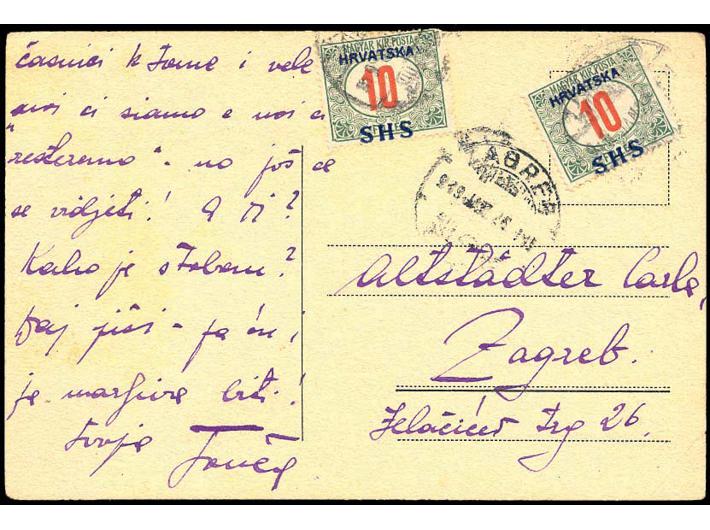 časnici k tome i vele
"noi ci siamo e noi ci
resteremo" - no još će
se vidjeti! A Ti?
Kako je s Tobom?
Daj piši - ja ću i
je marljive biti!
Tvoja
MAGYAR KIR. POSTA
HRVATSKA
10
SHS
MAGYAR KIR. POSTA
HRVATSKA
10
SHS
ZAGREB
Altstädter Carla,
Zagreb.
Jelačićev trg 26.